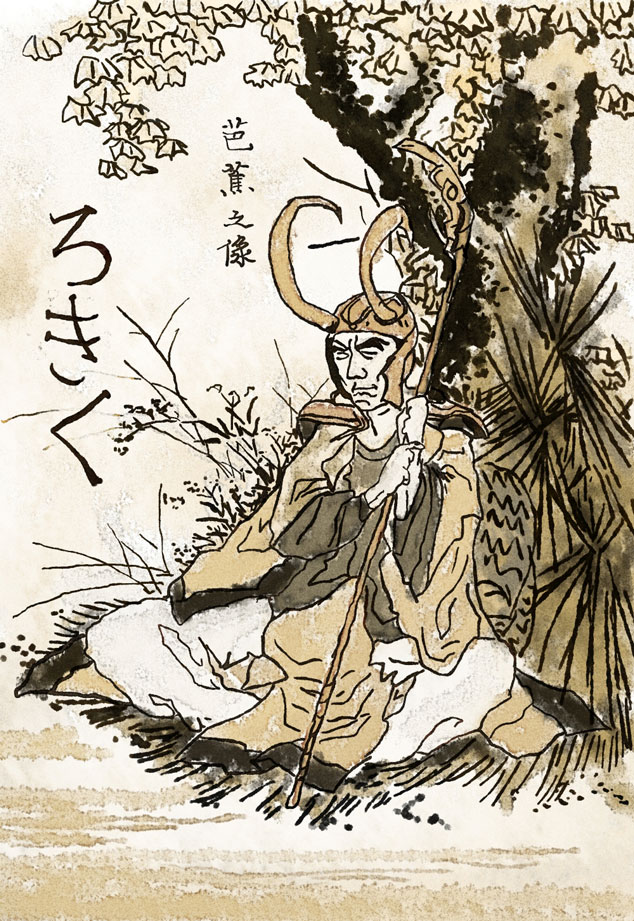 芭蕉之像
ろきく